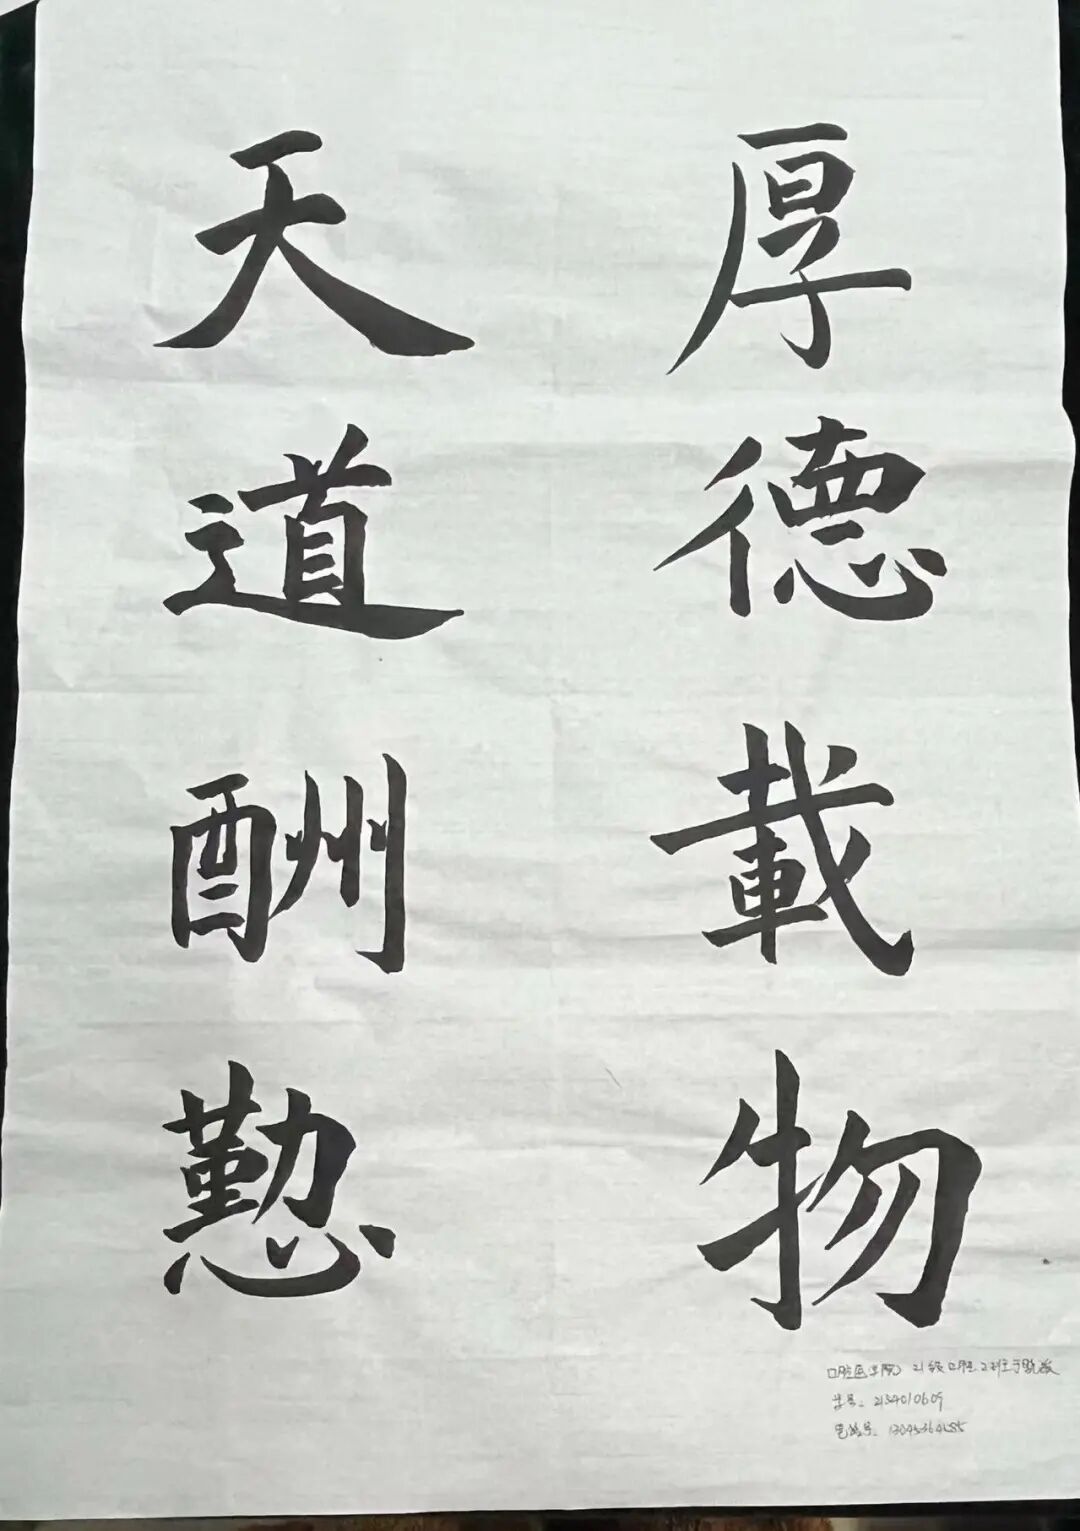 厚德載物
天道酬懃
口腔医学院 21级口腔2班
学号：2134010609
电话号：